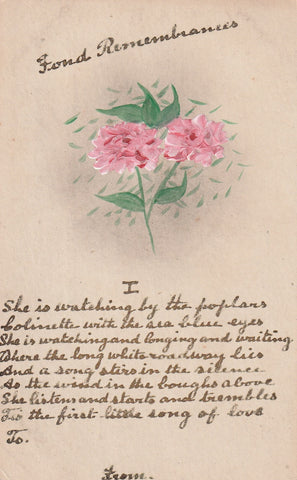 Fond Remembrances
I
She is watching by the poplars
Colinette with the sea blue eyes
She is watching and longing and waiting
Where the long white roadway lies
And a song stirs in the silence
As the wind in the boughs above
She listens and starts and trembles
Tis the first little song of love
To.
From.